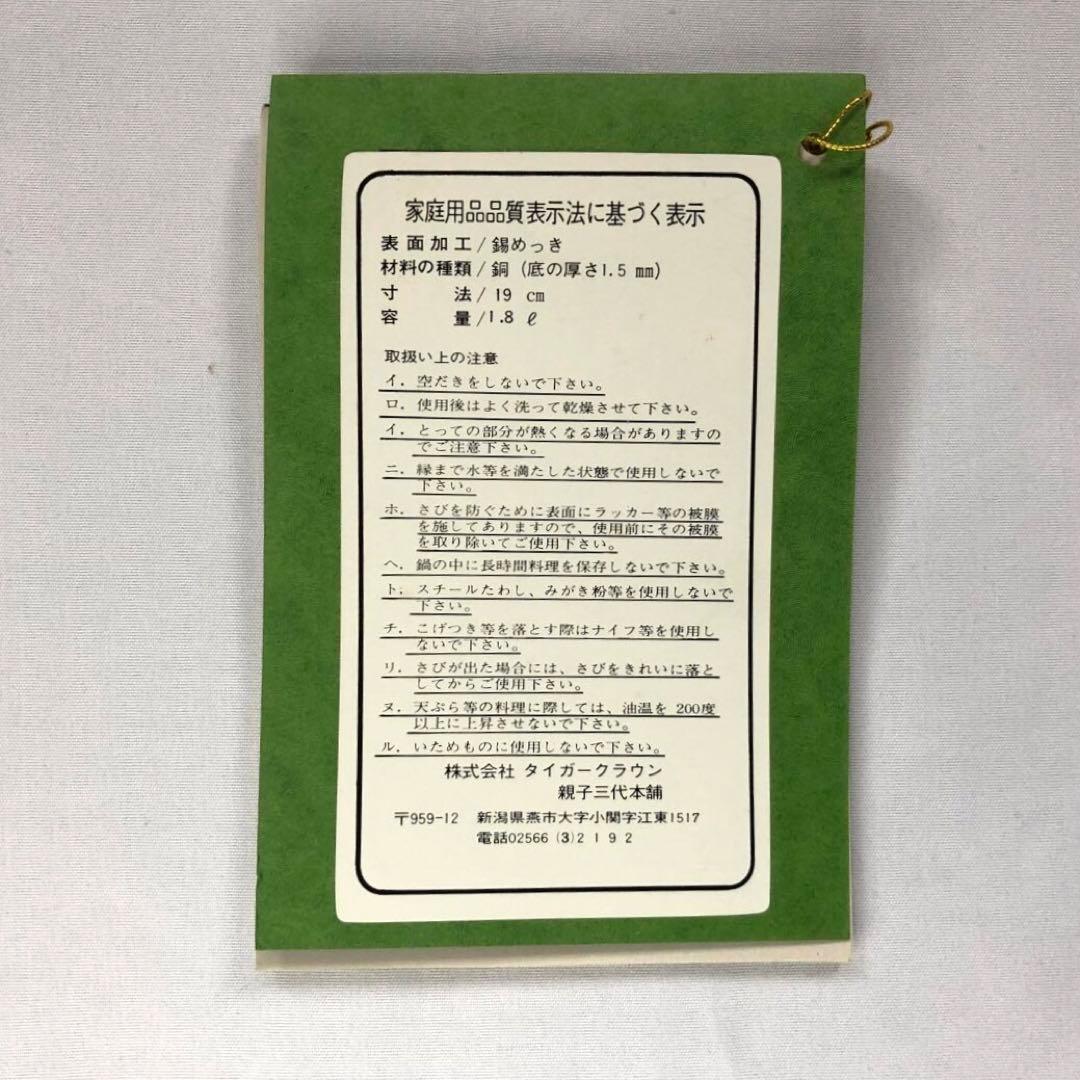 家庭用品品質表示法に基づく表示
表面加工/錫めっき
材料の種類/銅(底の厚さ1.5㎜)
寸　　法/19 ㎝
容　　量/1.8ℓ
取扱い上の注意
イ．空だきをしないで下さい。
ロ．使用後はよく洗って乾燥させて下さい。
イ．とっての部分が熱くなる場合がありますの
でご注意下さい。
ニ．縁まで水等を満たした状態で使用しないで
下さい。
ホ．さびを防ぐために表面にラッカー等の被膜
を施してありますので、使用前にその被膜
を取り除いてご使用下さい。
ヘ．鍋の中に長時間料理を保存しないで下さい。
ト．スチールたわし、みがき粉等を使用しないで
下さい。
チ．こげつき等を落とす際はナイフ等を使用し
ないで下さい。
リ．さびが出た場合には、さびをきれいに落と
してからご使用下さい。
ヌ．天ぷら等の料理に際しては、油温を 200度
以上に上昇させないで下さい。
ル．いためものに使用しないで下さい。
株式会社 タイガークラウン
親子三代本舗
〒959-12　新潟県燕市大字小関字江東1517
電話02566(3)2192